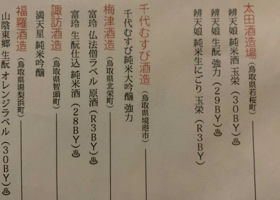 太田酒造場（鳥取県若桜町）
辨天娘 純米酒 玉栄（30BY）♨
辨天娘 生酛 強力（29BY）♨
辨天娘 純米生にごり 玉栄（R3BY）
千代むすび酒造（鳥取県境港市）
千代むすび純米大吟醸 強力
梅津酒造（鳥取県北栄町）
冨玲 仏法僧ラベル 原酒（R3BY）♨
冨玲 生酛仕込 純米酒（28BY）♨
諏訪酒造（鳥取県智頭町）
満天星 純米吟醸
福羅酒造（鳥取県湯梨浜町）
山陰東郷 生酛 オレンジラベル（30BY）♨